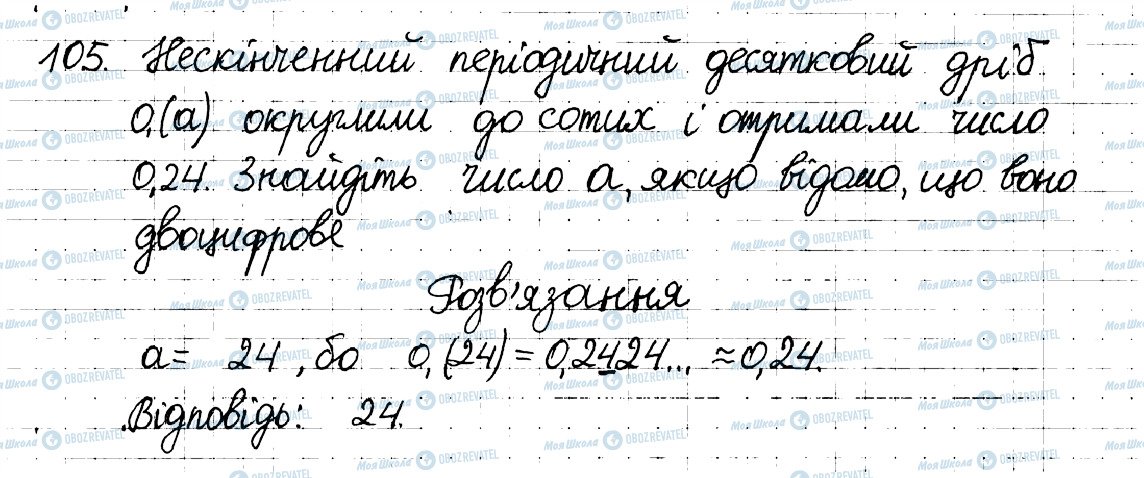 105. Нескінченний періодичний десятковий дріб
0,(a) округлили до сотих і отримали число
0,24. Знайдіть число a, якщо відомо, що воно
двоцифрове
Розв'язання
a = 24, бо 0,(24) = 0,2424... ≈ 0,24.
Відповідь: 24.